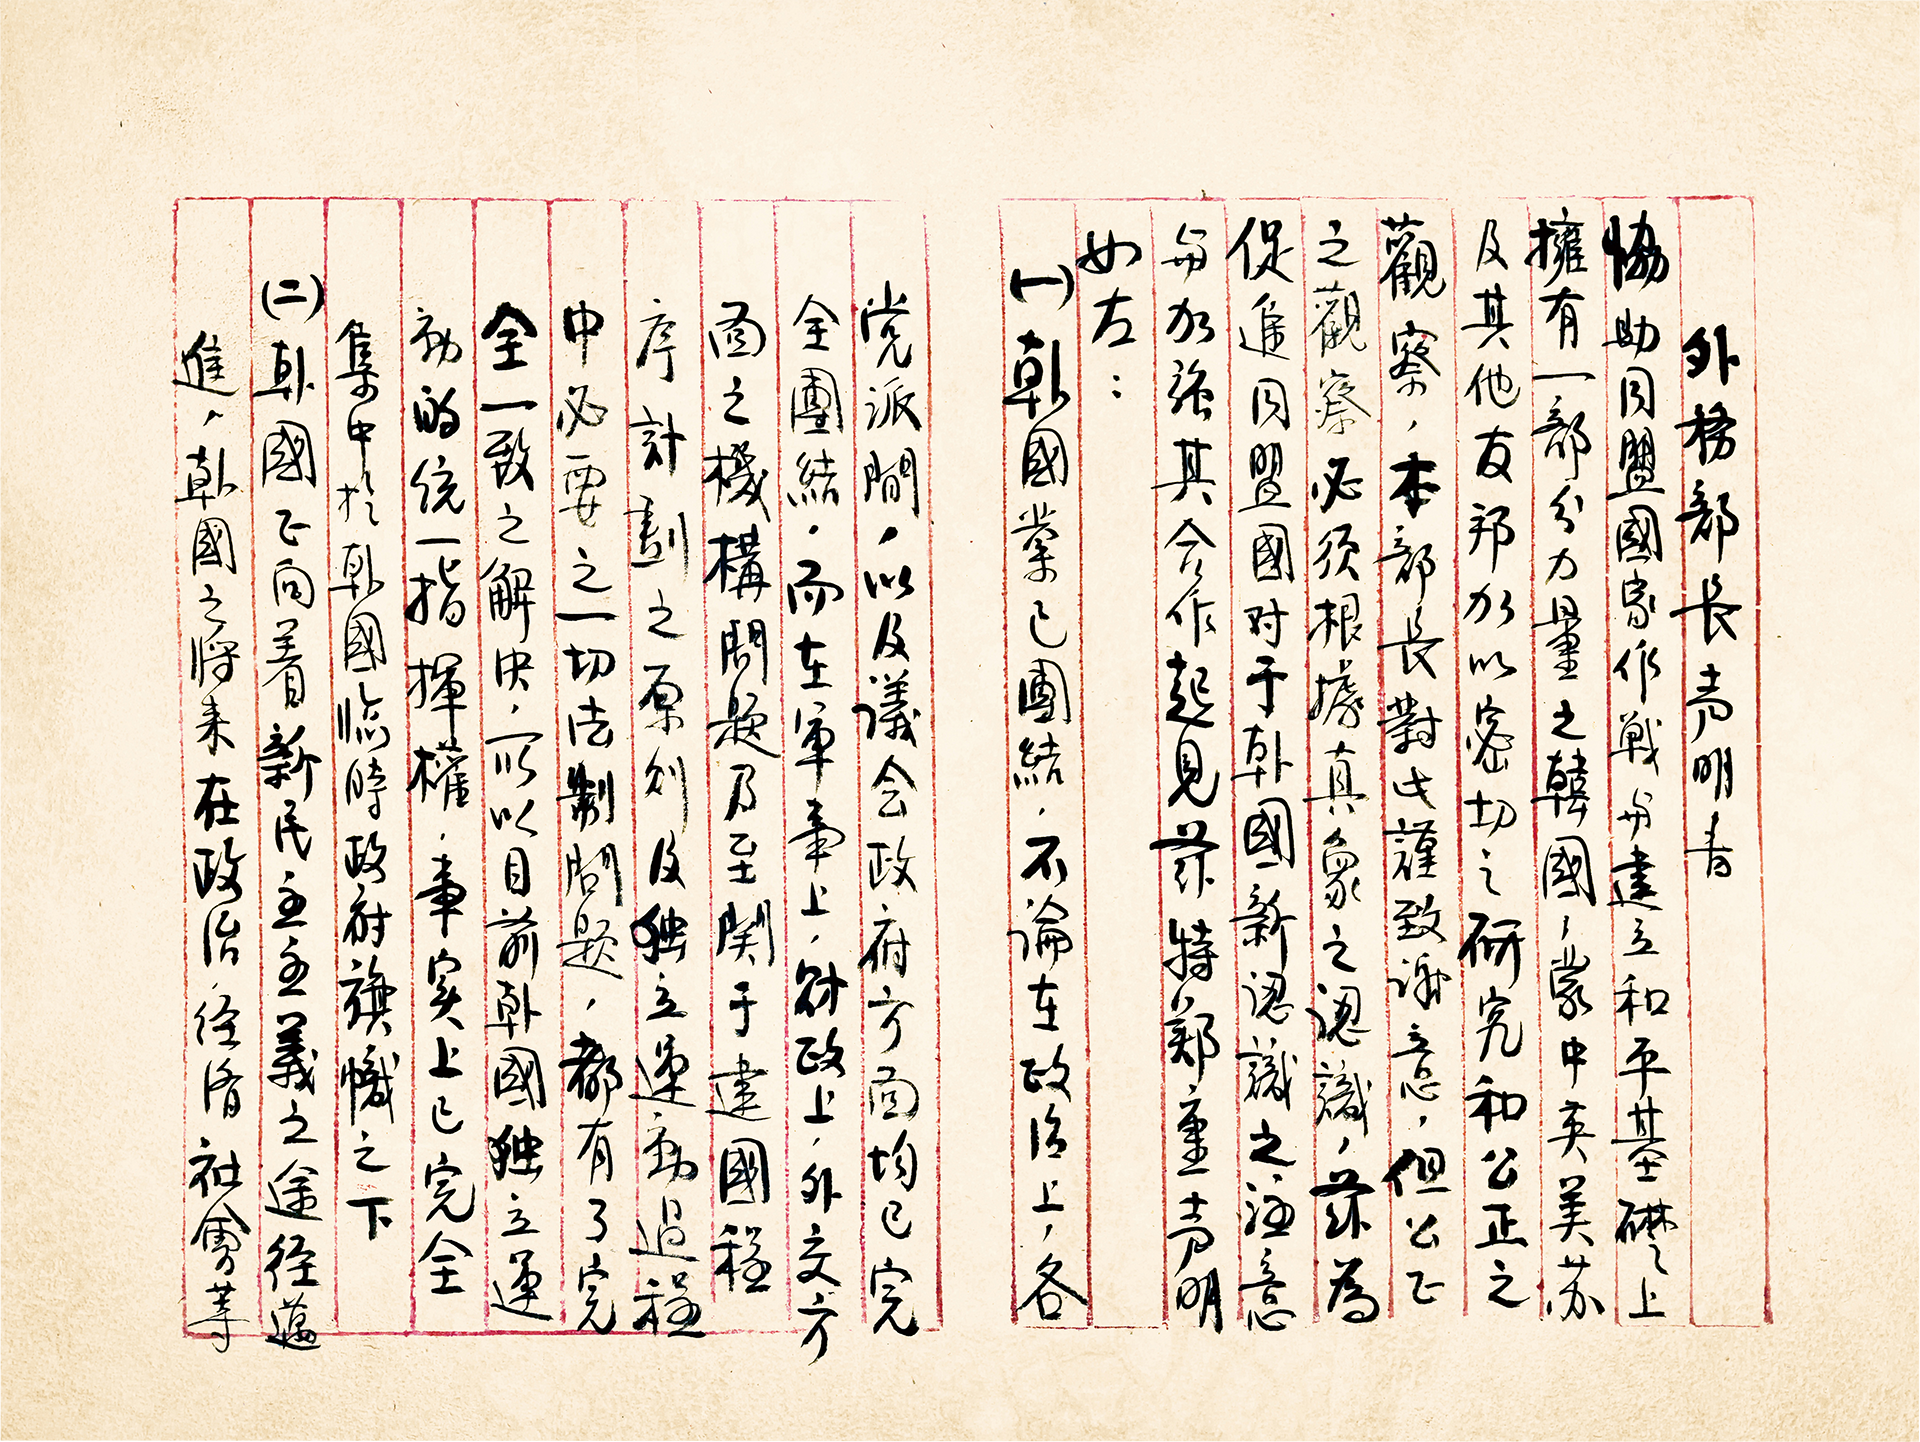 外務部長声明書
協助同盟國家作戦与建立和平基礎上
擁有一部分力量之韓國，蒙中英美苏
及其他友邦加以密切之研究和公正之
觀察，本部長對此謹致谢意，但公正
之觀察必须根據真象之認識，茲為
促進同盟國对于韩國新認識之注意
与加强其合作起見茲特鄭重声明
如左：
(一)韩國業已團結，不論在政治上，各
党派間，以及議会政府方面均已完
全團結，而在軍事上，財政上，外交方
面之機構問題乃至関于建國程
序計劃之原则及独立運動過程
中必要之一切法制問題，都有了完
全一致之解决，所以目前韩國独立運
动的统一指揮權，事实上已完全
集中於韩國临時政府旗幟之下
(二)韩國正向着新民主主義之途径邁
進，韩國之将来在政治，经济社會等